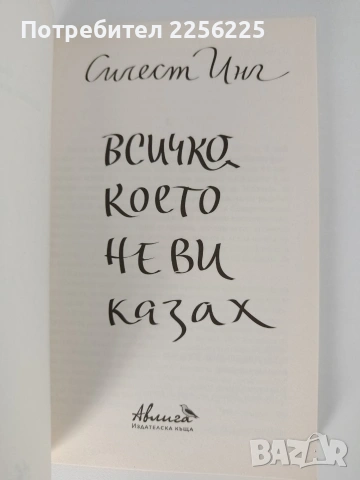 Потребител 2256225
Силест Инг
ВСИЧКО,
КОЕТО
НЕ ВИ
казах
Авлига
ИЗДАТЕЛСКА КЪЩА
BAZAR